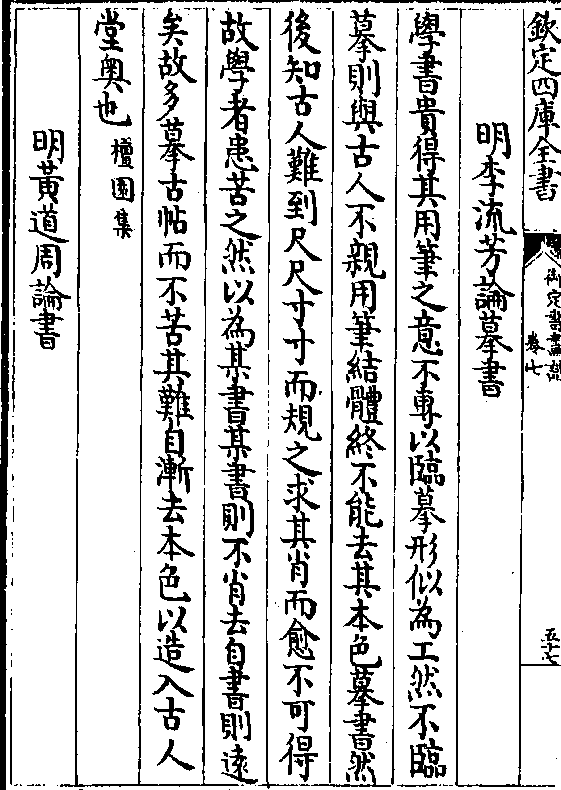 欽定四庫全書
御定書畫譜
卷七
五十七
明李流芳論摹書
學書貴得其用筆之意不專以臨摹形似為工然不臨
摹則與古人不親用筆結體終不能去其本色摹書然
後知古人難到尺尺寸寸而規之求其肖而愈不可得
故學者患苦之然以為某書某書則不肖去自書則遠
矣故多摹古帖而不苦其難自漸去本色以造入古人
堂奧也 檀園集
明黃道周論書